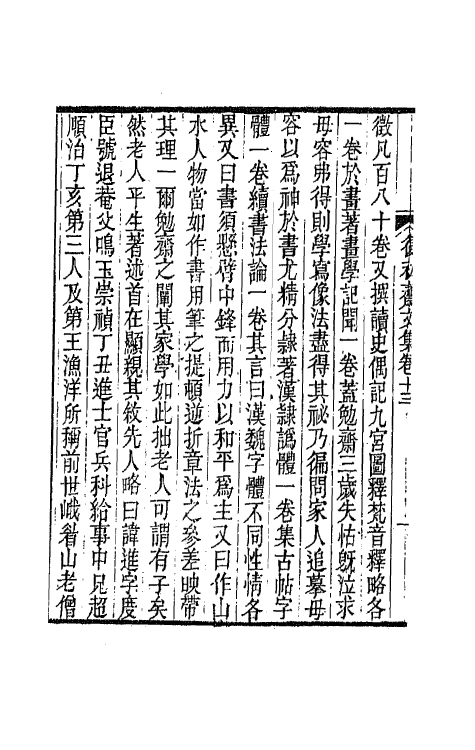 徵凡百八十卷又撰讀史偶記九宮圖釋梵音釋略各
一卷於畫著畫學記聞一卷蓋勉齋三歲失怙旣泣求
毋容弗得則學寫像法盡得其祕乃徧問家人追摹毋
容以爲神於書尤精分隸著漢隸譌體一卷集古帖字
體一卷續書法論一卷其言曰漢魏字體不同性情各
異又曰書須懸臂中鋒而用力以和平爲主又曰作山
水人物當如作書用筆之提頓遊折章法之參差映帶
其理一爾勉齋之闡其家學如此拙老人可謂有子矣
然老人平生著述首在顯親其敘先人略曰諱進字度
臣號退菴父鳴玉崇禎丁丑進士官兵科給事中兄超
順治丁亥第三人及第王漁洋所稱前世峨眉山老僧
文集卷十三